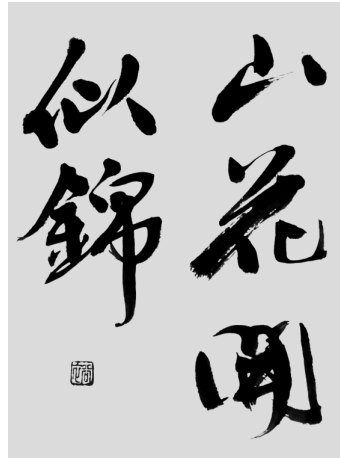 山花開
似錦